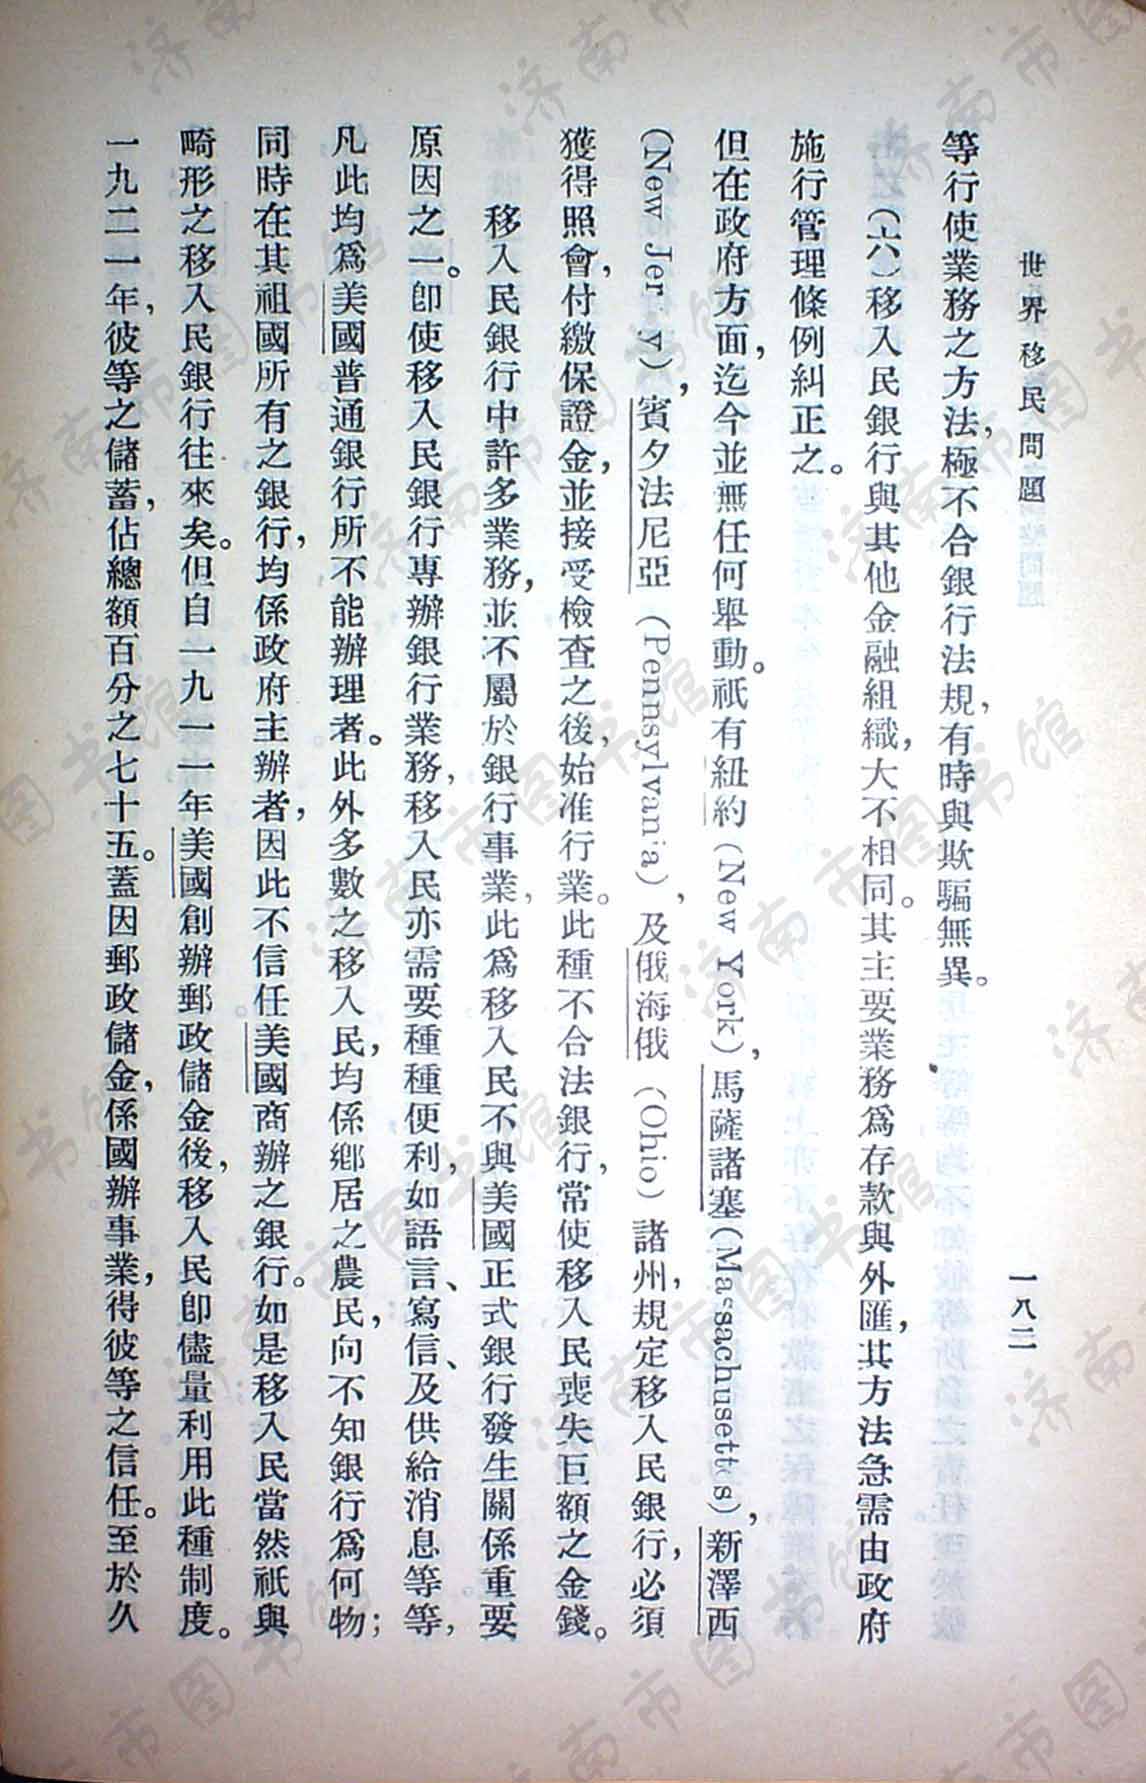 世界移民問題
一八二
等行使業務之方法，極不合銀行法規，有時與欺騙無異。
（六）移入民銀行與其他金融組織，大不相同。其主要業務爲存款與外匯，其方法急需由政府
施行管理條例糾正之。
但在政府方面，迄今並無任何舉動。祇有紐約（New York），馬薩諸塞（Massachusetts），新澤西
（New Jer y），賓夕法尼亞（Pennsylvania），及俄海俄（Ohio）諸州，規定移入民銀行，必須
獲得照會，付繳保證金，並接受檢查之後，始准行業。此種不合法銀行，常使移入民喪失巨額之金錢。
移入民銀行中許多業務，並不屬於銀行事業，此爲移入民不與美國正式銀行發生關係重要
原因之一。卽使移入民銀行專辦銀行業務，移入民亦需要種種便利，如語言、寫信、及供給消息等等，
凡此均爲美國普通銀行所不能辦理者。此外多數之移入民，均係鄉居之農民，向不知銀行爲何物；
同時在其祖國所有之銀行，均係政府主辦者，因此不信任美國商辦之銀行。如是移入民當然祇與
畸形之移入民銀行往來矣。但自一九一一年美國創辦郵政儲金後，移入民卽儘量利用此種制度。
一九二一年，彼等之儲蓄，佔總額百分之七十五。蓋因郵政儲金，係國辦事業，得彼等之信任。至於久